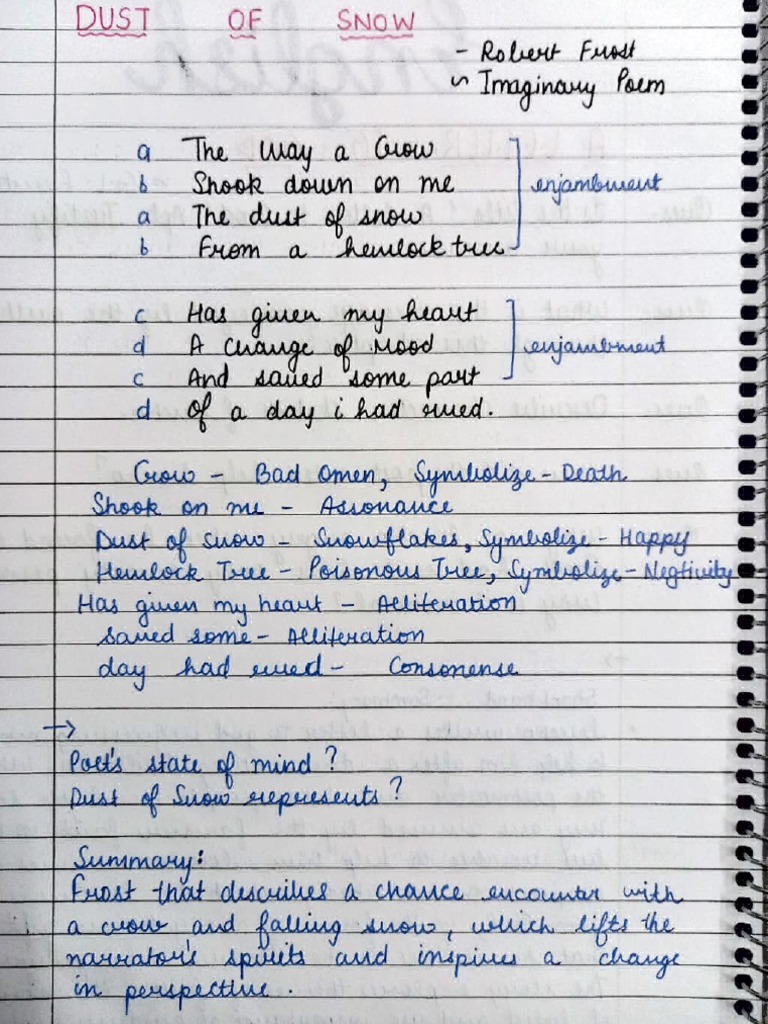 DUST OF SNOW
- Robert Frost
~ Imaginary Poem
a The Way a Crow
b Shook down on me
a The dust of snow
b From a hemlock tree
enjambment
c Has given my heart
d A change of Mood
c And saved some part
d Of a day i had rued.
enjambment
Crow - Bad Omen, Symbolize - Death
Shook on me - Assonance
Dust of snow - Snowflakes, Symbolize - Happy
Hemlock Tree - Poisonous Tree, Symbolize - Negtivity
Has given my heart - Alliteration
saved some - Alliteration
day had rued - Consonense
→
Poet's state of mind?
Dust of Snow represents?
Summary:
Frost that describes a chance encounter with
a crow and falling snow, which lifts the
narrator's spirits and inspires a change
in perspective.